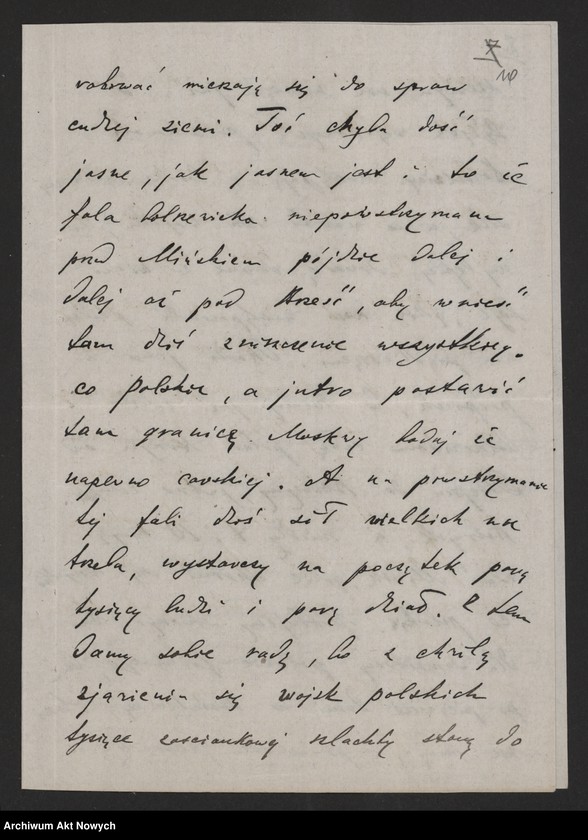 7
10
mieszają się do spraw
cudzej ziemi. Toć chyba dość
jasne, jak jasnem jest i to że
fala bolszewicka niepowstrzymana
pod Mińskiem pójdzie dalej i
dalej aż pod Brześć, aby wnieść
tam dziś zniszczenie wszystkiego
co polskie, a jutro postawić
tam granicę Moskwy bodaj że
napewno carskiej. A na powstrzymanie
tej fali dziś sił wielkich nie
trzeba, wystarczy na początek parę
tysięcy ludzi i parę dział. Z tem
damy sobie radę, bo z chwilą
zjawienia się wojsk polskich
tysiące zaściankowej szlachty staną do
Archiwum Akt Nowych